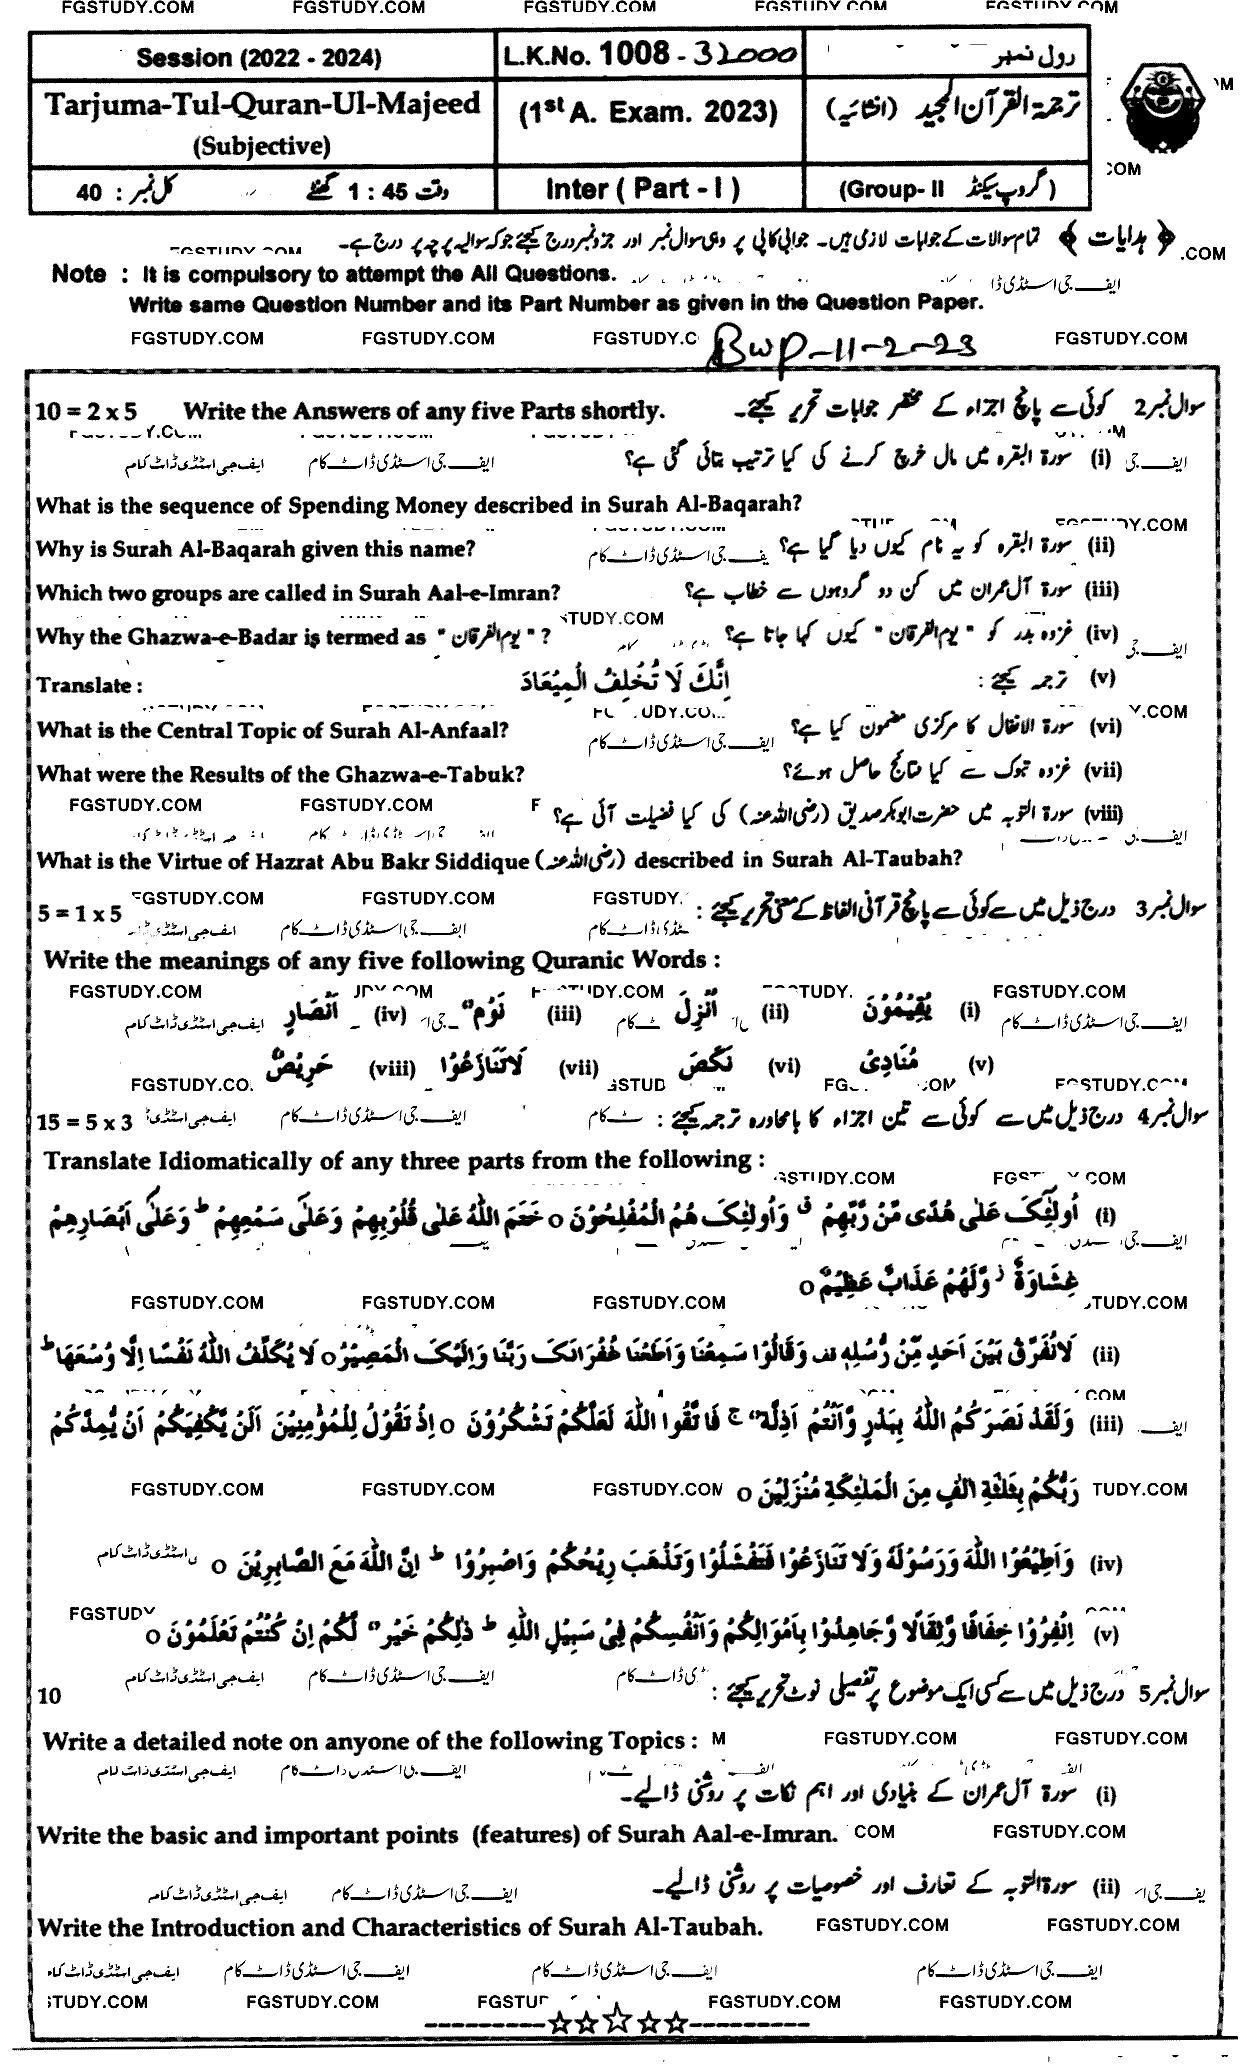 FGSTUDY.COM FGSTUDY.COM FGSTUDY.COM FGSTUDY.COM FGSTUDY.COM
Session (2022 - 2024) L.K.No. 1008 - 32000 رول نمبر
Tarjuma-Tul-Quran-Ul-Majeed (1st A. Exam. 2023) ترجمۃ القرآن المجید (انشائیہ)
(Subjective)
کل نمبر : 40 وقت 1 : 45 گھنٹے Inter ( Part - I ) (Group- II گروپ سیکنڈ)
﴿ ہدایات ﴾ تمام سوالات کے جوابات لازمی ہیں۔ جوابی کاپی پر وہی سوال نمبر اور جزو نمبر درج کیجئے جو کہ سوالیہ پرچہ پر درج ہے۔
Note : It is compulsory to attempt the All Questions.
Write same Question Number and its Part Number as given in the Question Paper.
FGSTUDY.COM FGSTUDY.COM FGSTUDY.C FGSTUDY.COM
BWP-11-2-23
سوال نمبر 2 کوئی سے پانچ اجزاء کے مختصر جوابات تحریر کیجئے۔ Write the Answers of any five Parts shortly. 10 = 2 x 5
(i) سورۃ البقرہ میں مال خرچ کرنے کی کیا ترتیب بتائی گئی ہے؟
What is the sequence of Spending Money described in Surah Al-Baqarah?
Why is Surah Al-Baqarah given this name? (ii) سورۃ البقرہ کو یہ نام کیوں دیا گیا ہے؟
Which two groups are called in Surah Aal-e-Imran? (iii) سورۃ آل عمران میں کن دو گروہوں سے خطاب ہے؟
Why the Ghazwa-e-Badar is termed as "یوم الفرقان" ? (iv) غزوہ بدر کو "یوم الفرقان" کیوں کہا جاتا ہے؟
Translate : اِنَّكَ لَا تُخْلِفُ الْمِيْعَادَ (v) ترجمہ کیجئے :
What is the Central Topic of Surah Al-Anfaal? (vi) سورۃ الانفال کا مرکزی مضمون کیا ہے؟
What were the Results of the Ghazwa-e-Tabuk? (vii) غزوہ تبوک سے کیا نتائج حاصل ہوئے؟
FGSTUDY.COM FGSTUDY.COM (viii) سورۃ التوبہ میں حضرت ابوبکر صدیق (رضی اللہ عنہ) کی کیا فضیلت آئی ہے؟
What is the Virtue of Hazrat Abu Bakr Siddique (رضی اللہ عنہ) described in Surah Al-Taubah?
سوال نمبر 3 درج ذیل میں سے کوئی سے پانچ قرآنی الفاظ کے معنی تحریر کیجئے : 5 = 1 x 5
Write the meanings of any five following Quranic Words :
(i) يُقِيْمُوْنَ (ii) اُنْزِلَ (iii) نَوْمٌ (iv) اَنْصَارٍ
(v) مُنَادِىْ (vi) نَكَصَ (vii) لَاتَنَازَعُوْا (viii) حَرِيْصٌ
سوال نمبر 4 درج ذیل میں سے کوئی سے تین اجزاء کا بامحاورہ ترجمہ کیجئے : 15 = 5 x 3
Translate Idiomatically of any three parts from the following :
(i) اُولٰٓئِكَ عَلٰى هُدًى مِّنْ رَّبِّهِمْ ۚ وَاُولٰٓئِكَ هُمُ الْمُفْلِحُوْنَ o خَتَمَ اللّٰهُ عَلٰى قُلُوْبِهِمْ وَعَلٰى سَمْعِهِمْ ؕ وَعَلٰٓى اَبْصَارِهِمْ
غِشَاوَةٌ ۫ وَّلَهُمْ عَذَابٌ عَظِيْمٌ o
FGSTUDY.COM FGSTUDY.COM FGSTUDY.COM
(ii) لَانُفَرِّقُ بَيْنَ اَحَدٍ مِّنْ رُّسُلِهٖ وَقَالُوْا سَمِعْنَا وَاَطَعْنَا غُفْرَانَكَ رَبَّنَا وَاِلَيْكَ الْمَصِيْرُ o لَا يُكَلِّفُ اللّٰهُ نَفْسًا اِلَّا وُسْعَهَا ؕ
(iii) وَلَقَدْ نَصَرَكُمُ اللّٰهُ بِبَدْرٍ وَّاَنْتُمْ اَذِلَّةٌ ۚ فَاتَّقُوا اللّٰهَ لَعَلَّكُمْ تَشْكُرُوْنَ o اِذْ تَقُوْلُ لِلْمُؤْمِنِيْنَ اَلَنْ يَّكْفِيَكُمْ اَنْ يُّمِدَّكُمْ
رَبُّكُمْ بِثَلٰثَةِ اٰلٰفٍ مِنَ الْمَلٰئِكَةِ مُنْزَلِيْنَ o
FGSTUDY.COM FGSTUDY.COM FGSTUDY.COM
(iv) وَاَطِيْعُوا اللّٰهَ وَرَسُوْلَهٗ وَلَا تَنَازَعُوْا فَتَفْشَلُوْا وَتَذْهَبَ رِيْحُكُمْ وَاصْبِرُوْا ؕ اِنَّ اللّٰهَ مَعَ الصَّابِرِيْنَ o
(v) اِنْفِرُوْا خِفَافًا وَّثِقَالًا وَّجَاهِدُوْا بِاَمْوَالِكُمْ وَاَنْفُسِكُمْ فِىْ سَبِيْلِ اللّٰهِ ؕ ذٰلِكُمْ خَيْرٌ لَّكُمْ اِنْ كُنْتُمْ تَعْلَمُوْنَ o
سوال نمبر 5 درج ذیل میں سے کسی ایک موضوع پر تفصیلی نوٹ تحریر کیجئے : 10
Write a detailed note on anyone of the following Topics : FGSTUDY.COM FGSTUDY.COM
(i) سورۃ آل عمران کے بنیادی اور اہم نکات پر روشنی ڈالیے۔
Write the basic and important points (features) of Surah Aal-e-Imran. COM FGSTUDY.COM
(ii) سورۃ التوبہ کے تعارف اور خصوصیات پر روشنی ڈالیے۔
Write the Introduction and Characteristics of Surah Al-Taubah. FGSTUDY.COM FGSTUDY.COM
ایف جی اسٹڈی ڈاٹ کام ایف جی اسٹڈی ڈاٹ کام ایف جی اسٹڈی ڈاٹ کام ایف جی اسٹڈی ڈاٹ کام
STUDY.COM FGSTUDY.COM FGSTU FGSTUDY.COM FGSTUDY.COM